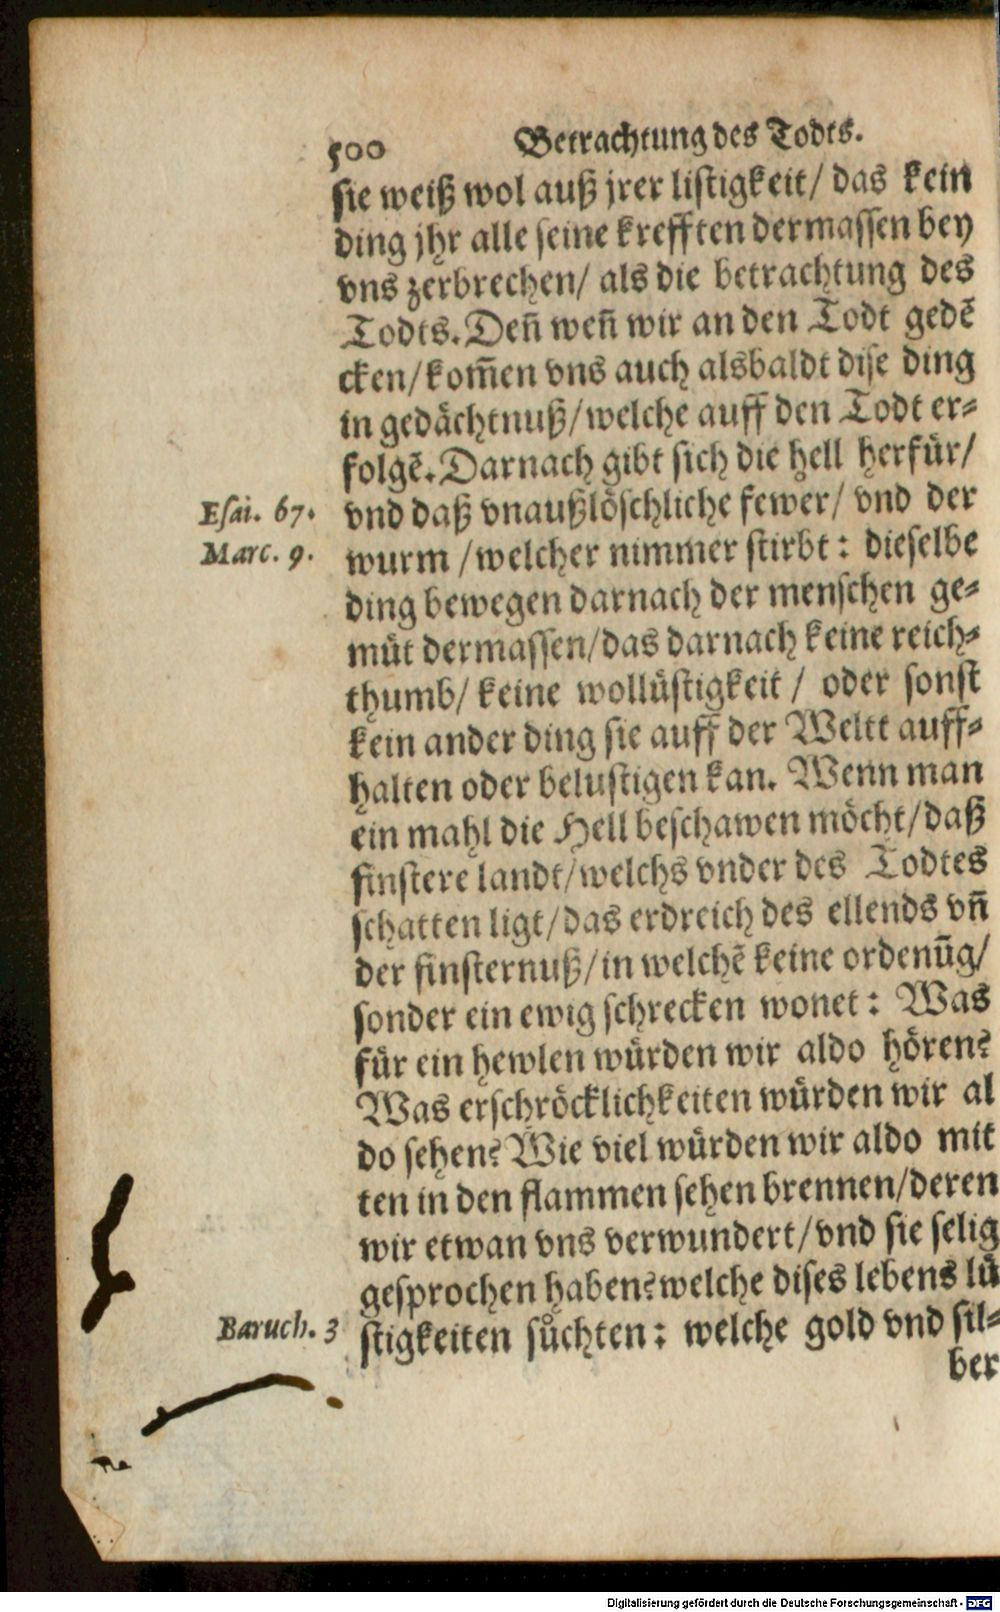 500 Betrachtung des Todts.
sie weiß wol auß jrer listigkeit/ das kein
ding jhr alle seine krefften dermassen bey
vns zerbrechen/ als die betrachtung des
Todts. Deñ weñ wir an den Todt gedẽ
cken/ kom̃en vns auch alsbaldt dise ding
in gedächtnuß/ welche auff den Todt er-
folgẽ. Darnach gibt sich die hell herfür/
Esai. 67. vnd daß vnaußlöschliche fewer/ vnd der
Marc. 9. wurm / welcher nimmer stirbt: dieselbe
ding bewegen darnach der menschen ge-
müt dermassen/ das darnach keine reich-
thumb/ keine wollüstigkeit / oder sonst
kein ander ding sie auff der Weltt auff-
halten oder belustigen kan. Wenn man
ein mahl die Hell beschawen möcht/ daß
finstere landt/ welchs vnder des Todtes
schatten ligt/ das erdreich des ellends vñ
der finsternuß/ in welchẽ keine ordenũg/
sonder ein ewig schrecken wonet: Was
für ein hewlen würden wir aldo hören?
Was erschröcklichkeiten würden wir al
do sehen? Wie viel würden wir aldo mit
ten in den flammen sehen brennen/ deren
wir etwan vns verwundert/ vnd sie selig
gesprochen haben? welche dises lebens lü
Baruch. 3 stigkeiten sůchten: welche gold vnd sil-
ber
Digitalisierung gefördert durch die Deutsche Forschungsgemeinschaft - DFG